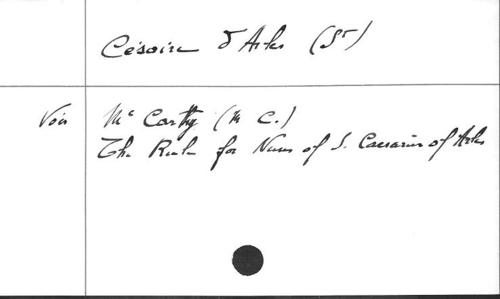 Césaire d'Arles (St)
Voir Mc Carthy (M C.)
The Rule for Nuns of S. Caesarius of Arles